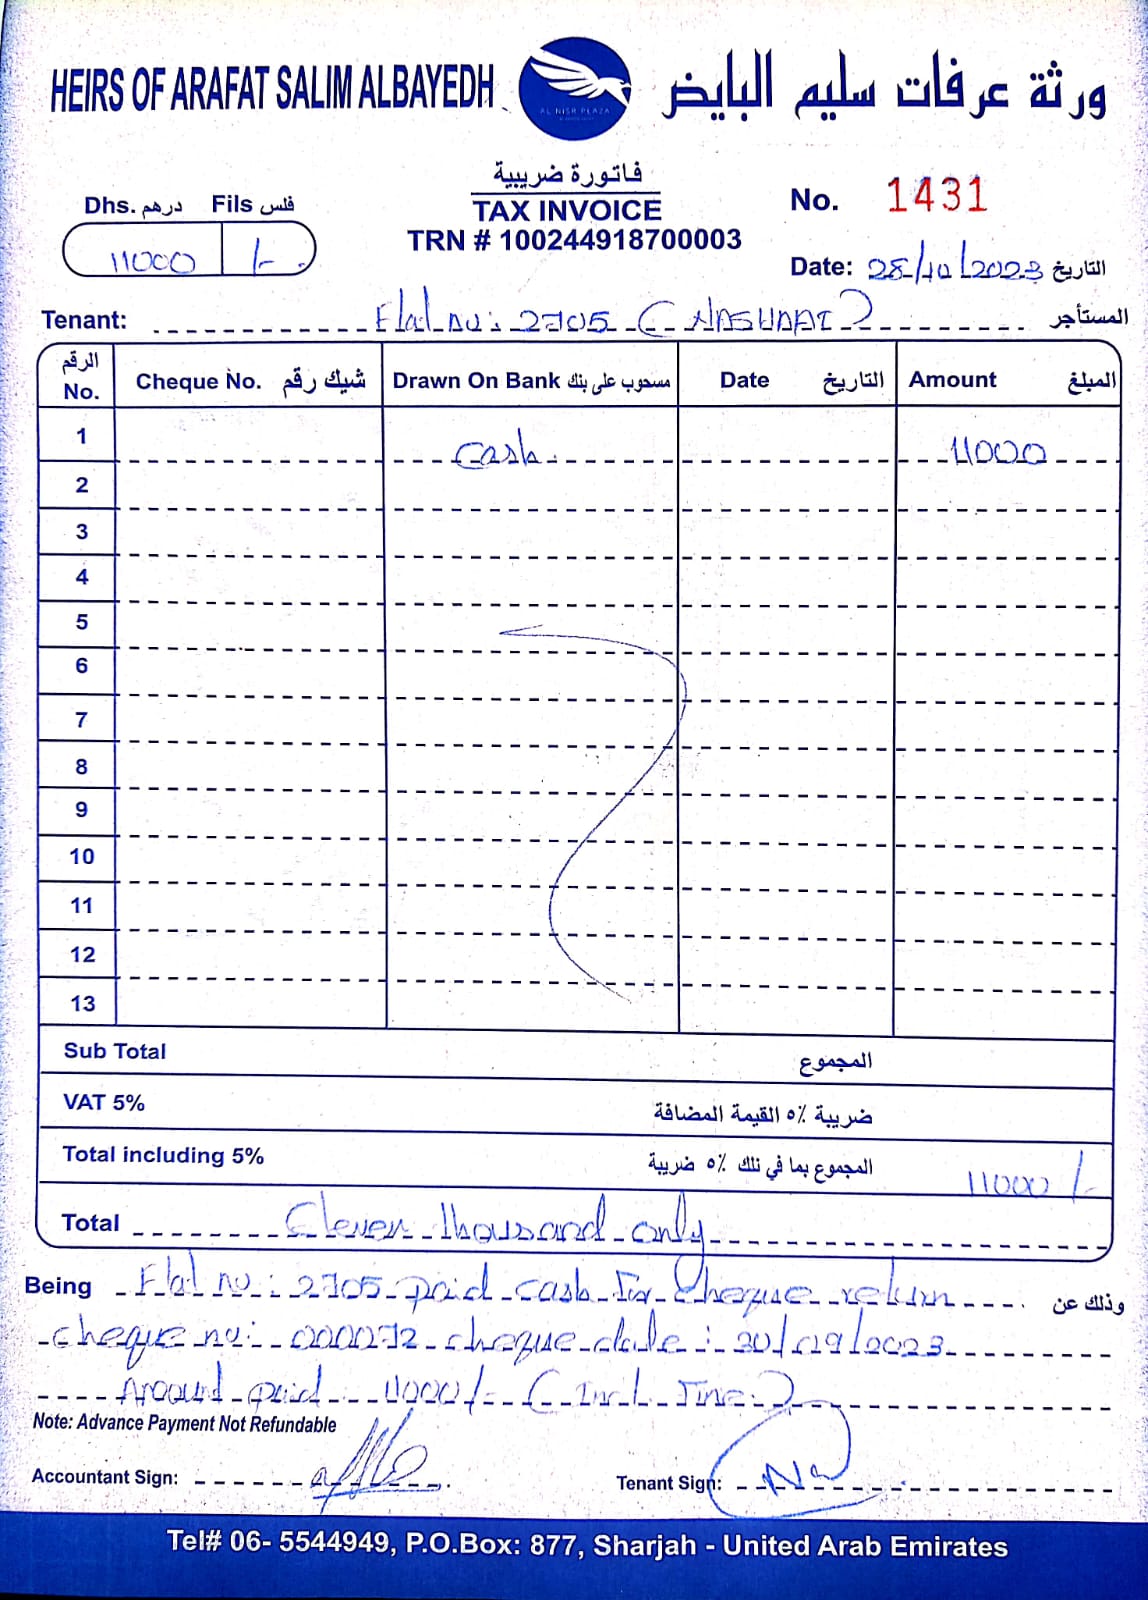 HEIRS OF ARAFAT SALIM ALBAYEDH
AL NISR PLAZA
ورثة عرفات سليم البايض
فاتورة ضريبية
TAX INVOICE
TRN # 100244918700003
Dhs. درهم Fils فلس
11000 /-
No. 1431
Date: 28/10/2023 التاريخ
Tenant: Flat no: 2705 (NASHAAT) المستأجر
الرقم No. Cheque No. شيك رقم Drawn On Bank مسحوب على بنك Date التاريخ Amount المبلغ
1 cash 11000
2
3
4
5
6
7
8
9
10
11
12
13
Sub Total المجموع
VAT 5% ضريبة ٥٪ القيمة المضافة
Total including 5% المجموع بما في ذلك ٥٪ ضريبة 11000/-
Total Eleven thousand only
Being Flat no: 2705 paid cash for cheque return وذلك عن
cheque no: 000072 cheque date: 30/09/2023
Amount paid 11000/- (Incl. Fine)
Note: Advance Payment Not Refundable
Accountant Sign:
Tenant Sign:
Tel# 06- 5544949, P.O.Box: 877, Sharjah - United Arab Emirates